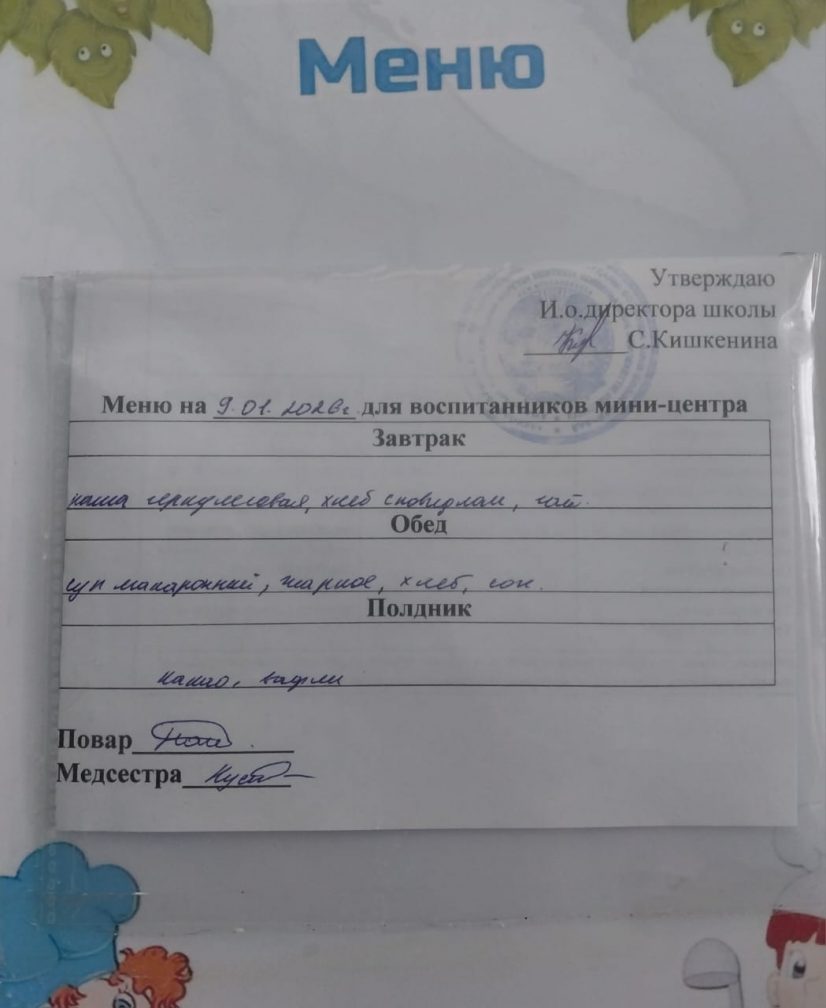 Меню
Утверждаю
И.о.директора школы
С.Кишкенина
Меню на 9.01.2026г. для воспитанников мини-центра
Завтрак
каша геркулесовая, хлеб с повидлом, чай.
Обед
суп макаронный, жаркое, хлеб, сок.
Полдник
какао, вафли
Повар
Медсестра